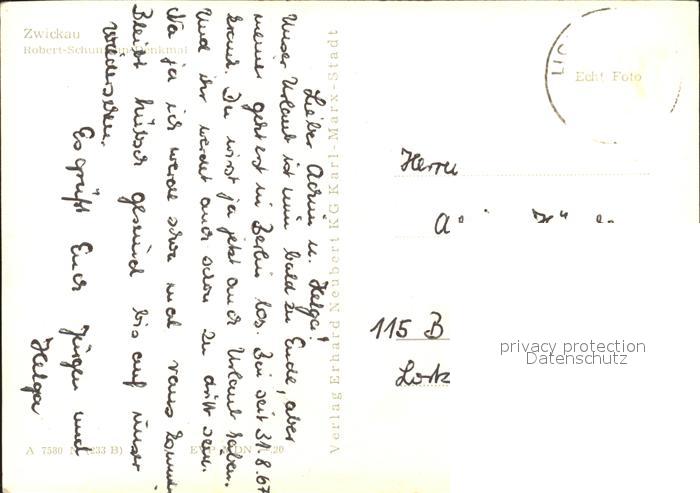 Zwickau
Robert-Schumann-Denkmal
Lieber Achim u. Helga!
Unser Urlaub ist nun bald zu Ende, aber
meiner geht erst in Berlin los. Bin seit 31.8.67
krank. Du wirst ja jetzt auch Urlaub haben.
Und ihr werdet auch schon zu dritt sein.
Na ja ich werde schon mal raus kommen.
Bleibt hübsch gesund bis auf unser
Wiedersehen.
Es grüßt Euch Jürgen und
Helga
A 7580 N (233 B)
EVP MDN 20
Verlag Erhard Neubert KG Karl-Marx-Stadt
Echt Foto
Herrn
A
115 B
privacy protection
Datenschutz